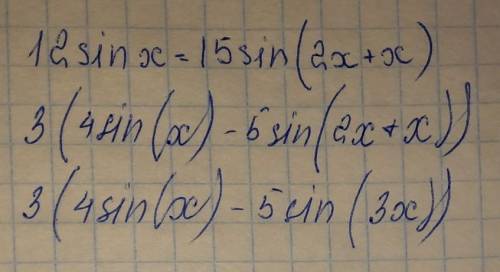 12sin x = 15sin(2x+x)
3(4sin(x) - 5sin(2x+x))
3(4sin(x) - 5sin(3x))